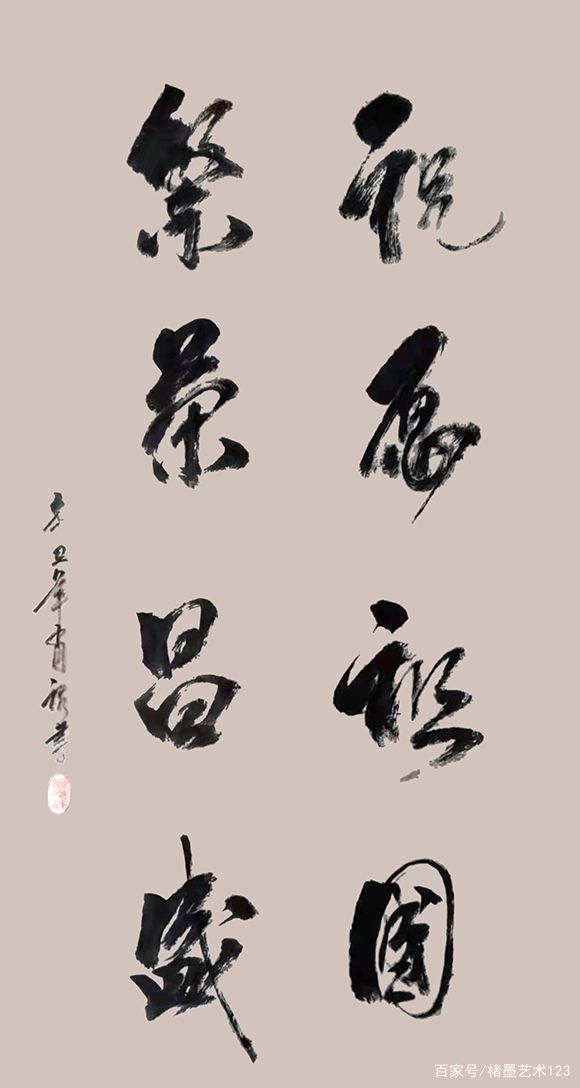 祝愿祖國
繁荣昌盛
辛丑年肖书
百家号/楮墨艺术123